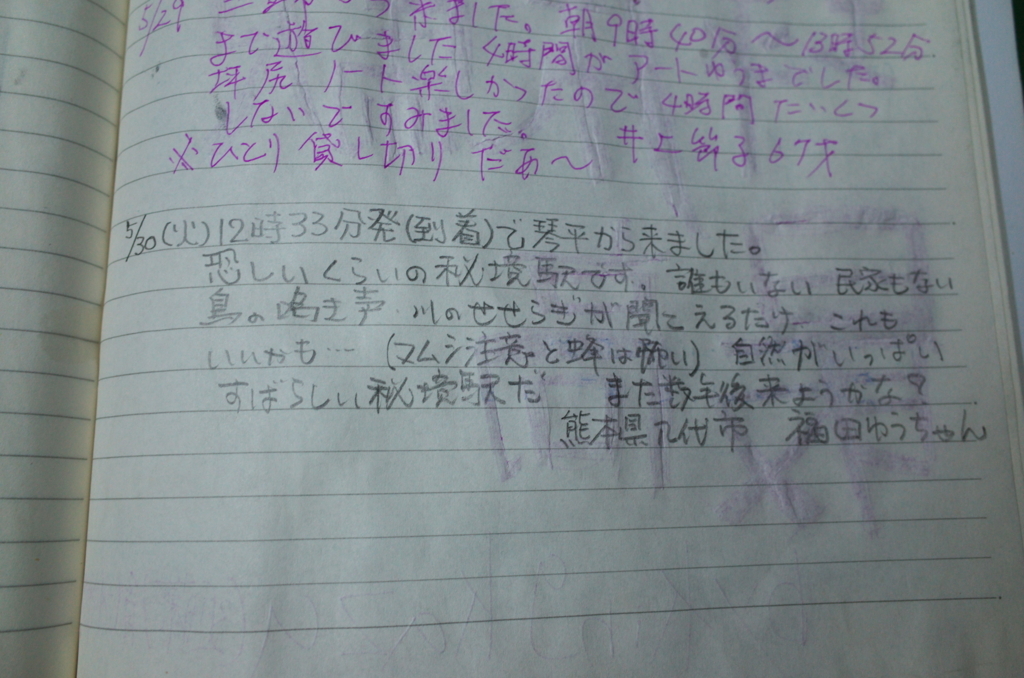 5/29 きました。朝9時40分〜13時52分
まで遊びました 4時間が アートゆうきでした。
坪尻ノート楽しかったので 4時間 たいくつ
しないですみました。
※ひとり貸し切りだぁ〜 井上 子 67才
5/30(火)12時33分発(到着)で琴平から来ました。
恐しいくらいの秘境駅です。誰もいない 民家もない
鳥の鳴き声 川のせせらぎが聞こえるだけ これも
いいかも… (マムシ注意と蜂は怖い) 自然がいっぱい
すばらしい秘境駅だ また数年後来ようかな?
熊本県八代市 福田ゆうちゃん